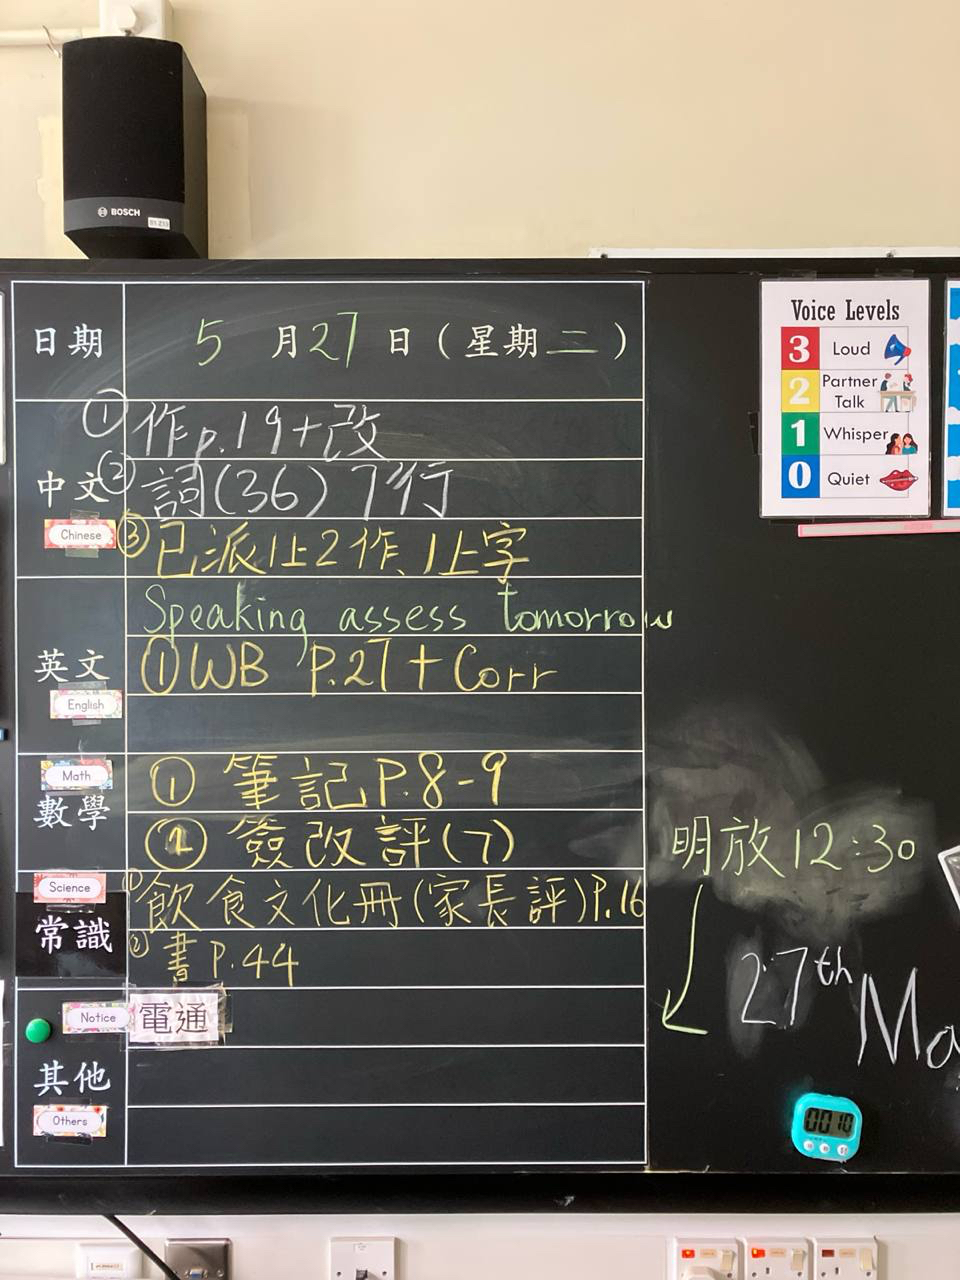 BOSCH
日期 5月27日（星期二）
① 作p.19+改
中文 ② 詞(36) 7行
Chinese ③ 已派1上2作、1上字
Speaking assess tomorrow
英文 ① WB P.27 + Corr
English
Math ① 筆記P.8-9
數學 ② 簽改評(7)
Science ① 飲食文化冊(家長評)P.16
常識 ② 書P.44
Notice 電通
其他
Others
Voice Levels
3 Loud
2 Partner Talk
1 Whisper
0 Quiet
明放12:30
27th Ma
00 10